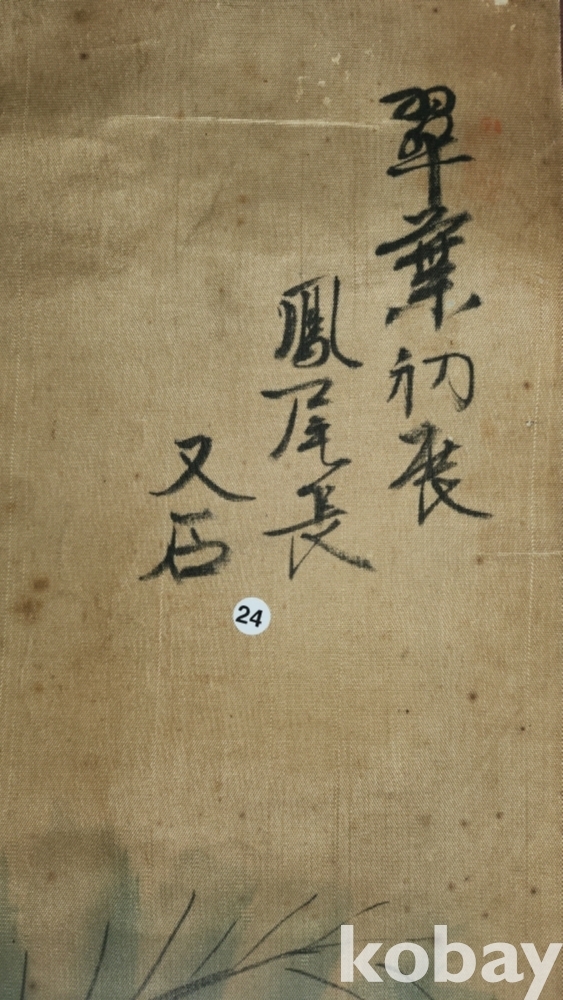 翠葉初展
鳳尾長
又石
24
kobay